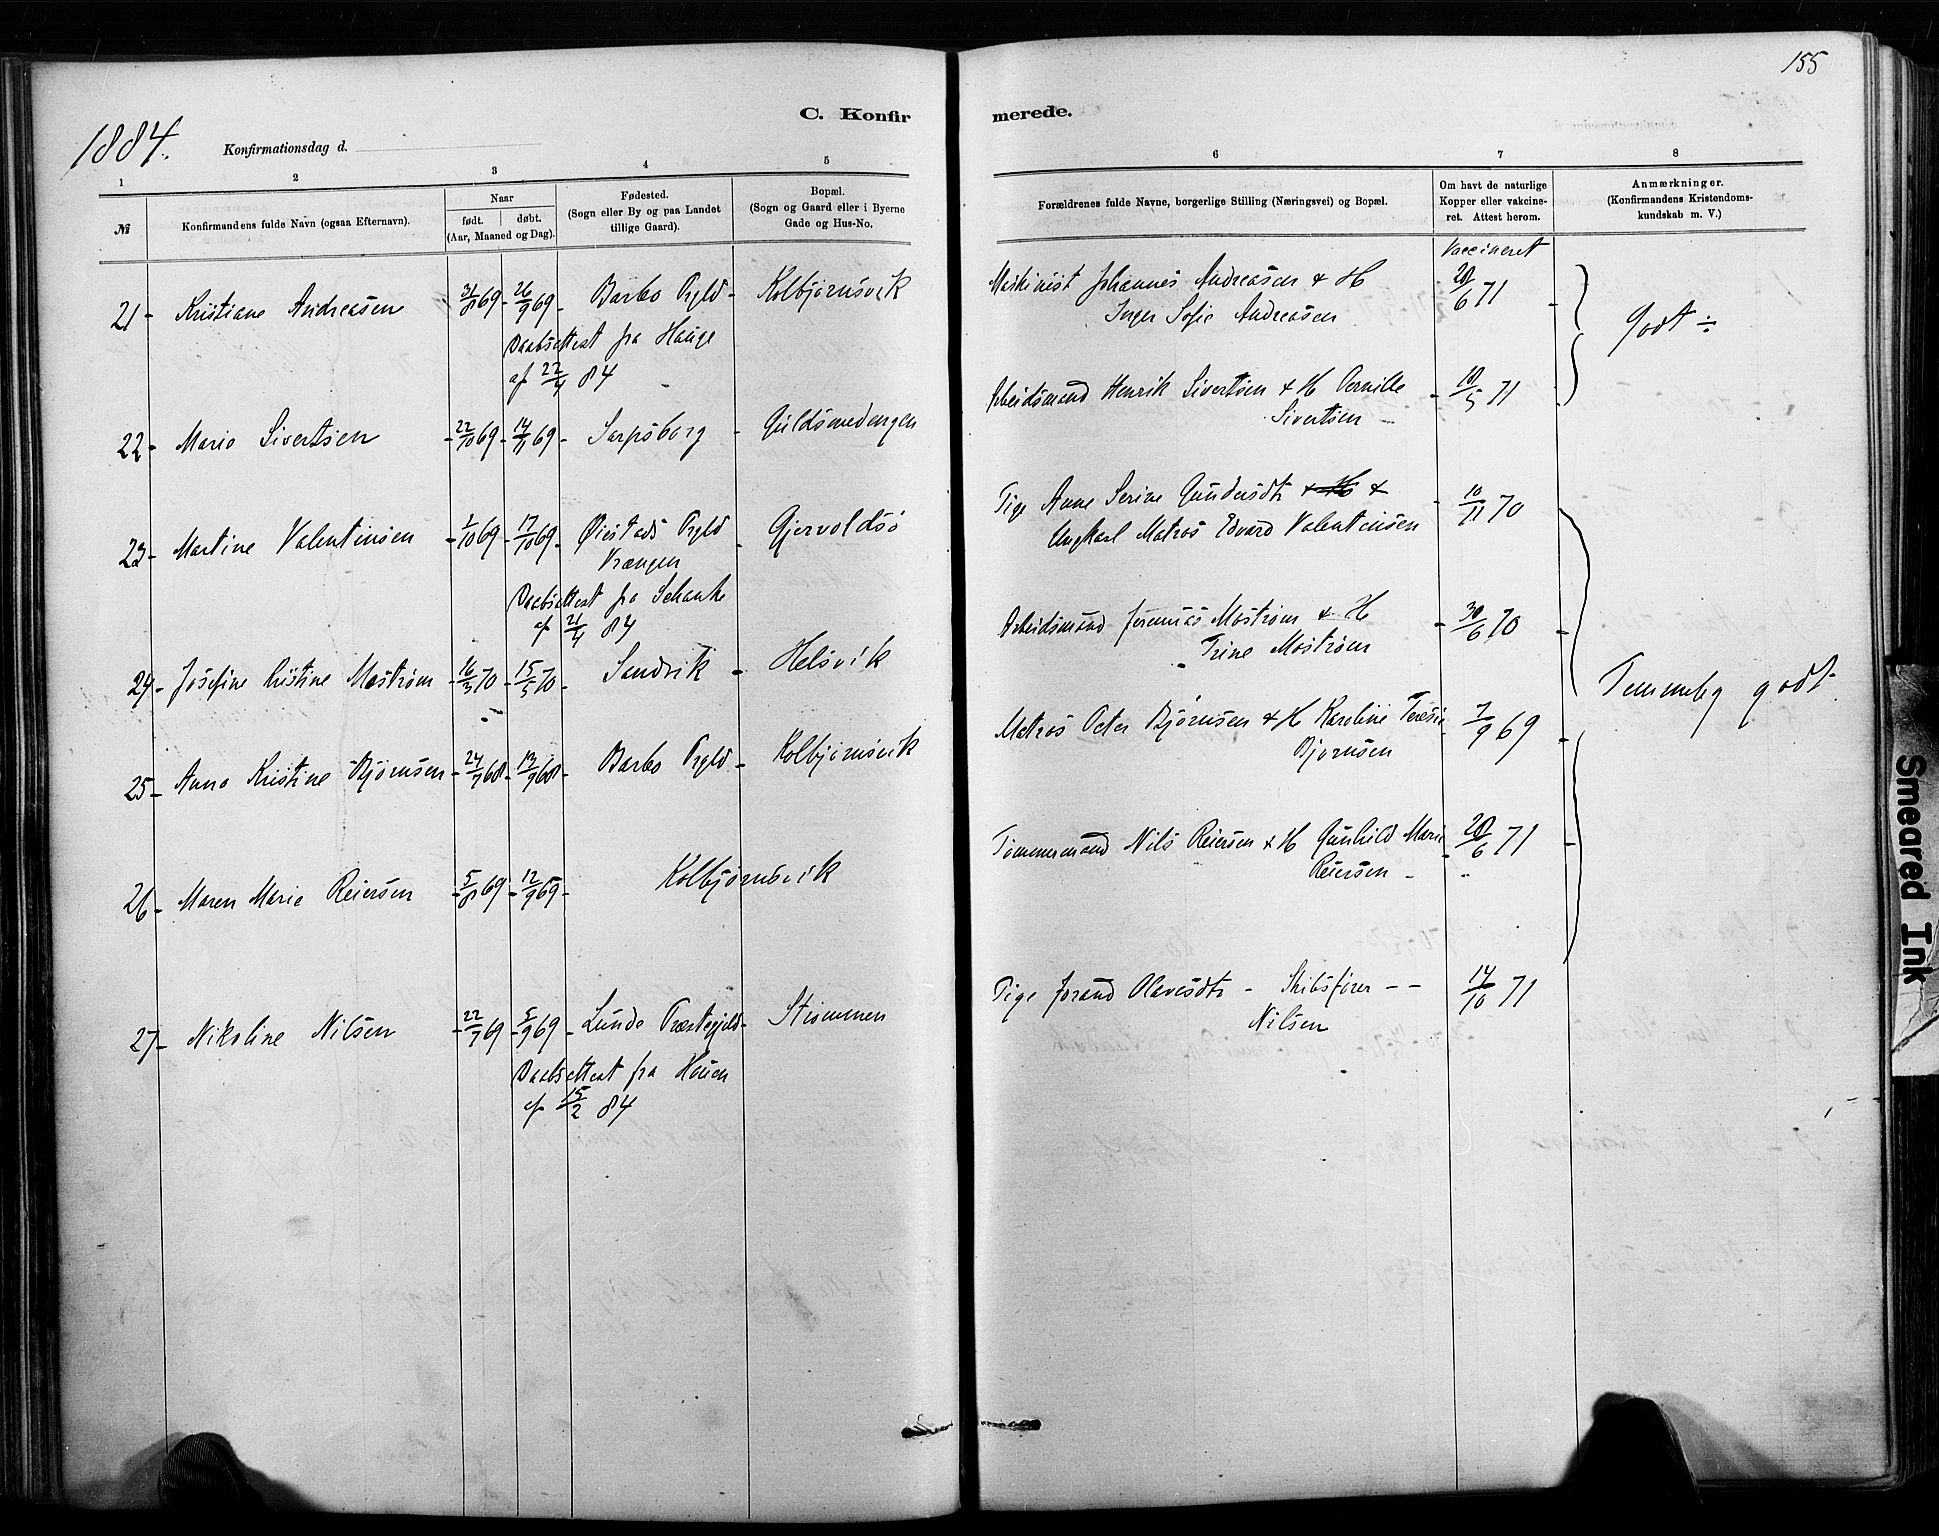 155
C. Konfirmerede.
1884.
Konfirmationsdag d.
1 2 3 4 5 6 7 8
№
Konfirmandens fulde Navn (ogsaa Efternavn).
Naar
født. døbt.
(Aar, Maaned og Dag).
Fødested.
(Sogn eller By og paa Landet
tillige Gaard).
Bopæl.
(Sogn og Gaard eller i Byerne
Gade og Hus-No.
Forældrenes fulde Navne, borgerlige Stilling (Næringsvei) og Bopæl.
Om havt de naturlige
Kopper eller vakcine-
ret. Attest herom.
Anmærkninger.
(Konfirmandens Kristendoms-
kundskab m. V.)
Vaccineret
21 - Kristiane Andreasen 31/8 69 - 26/9 69 - Barbo Prgld - Kolbjørnsvik Maskinist Johannes Andreasen & H 28/6 71 -
Inger Sofie Andreasen
Daabsattest fra Hauge
af 22/4 84
Godt ÷
22 - Marie Sivertsen - 22/10 69 - 14/11 69 - Sarpsborg - Guldsmedengen Arbeidsmand Henrik Sivertsen & H Pernille - 18/5 71
Sivertsen -
23 - Martine Valentinsen - 1/10 69 - 17/10 69 - Øiestads Prgld - Gjervoldsø Tige Anne Serine Gundersdtr & H & - 10/11 70
Vrængen Ungkarl Matros Edvard Valentinsen
Daabsattest fra Schanke
af 21/4 84
24 - Josefine Kristine Mostrøm - 16/3 70 - 15/5 70 - Sandvik - Helsvik Arbeidsmand Jeremias Mostrøm & H - 30/6 70 -
Trine Mostrøm
Temmelig godt.
25 - Anna Kristine Bjørnsen - 24/7 68 - 13/9 68 - Barbo Prgld - Kolbjørnsvik Matros Peter Bjørnsen & H Karoline Teresie 7/9 69 -
Bjørnsen
26 - Maren Marie Reiersen - 5/8 69 - 12/9 69 - Kolbjørnsvik Tømmermand Nils Reiersen & H Gunhild Marie - 28/6 71 -
Reiersen -
27 - Nikoline Nilsen - 22/7 69 - 5/9 69 - Lunde Præstegjeld - Strømmen Pige Jorand Olavesdtr - Skibsfører - - 14/10 71
Nilsen
Daabsattest fra Houen
af 15/2 84
Smeared Ink